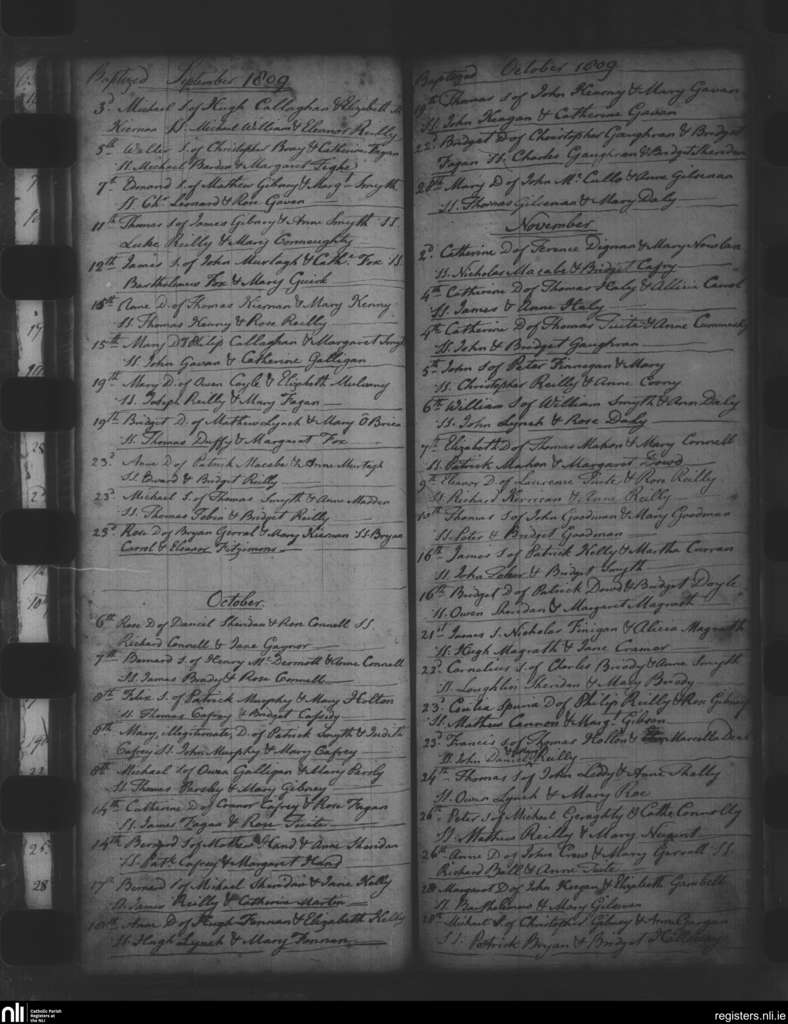 Baptized September 1809
3d Michael S of Hugh Callaghan & Elizabeth Mc
Kiernan SS. Michael William & Eleanor Reilly
5th Walter S. of Christopher Bray & Catherine Fagan
SS. Michael Barden & Margaret Tighe
7th Bernard S. of Mathew Gibney & Margt Smyth
SS. Chs. Leonard & Rose Gavan
11th Thomas S of James Gibney & Anne Smyth SS.
Luke Reilly & Mary Connaughty
12th James S. of John Murtagh & Cath. Fox SS
Bartholomew Fox & Mary Quirk
15th Anne D. of Thomas Kiernan & Mary Kenny
SS Thomas Kenny & Rose Reilly
15th Mary D of Philip Callaghan & Margaret Smyth
SS John Gavan & Catherine Galligan
19th Mary D. of Owen Coyle & Elizabeth Mulvany
SS. Joseph Reilly & Mary Fagan
19th Bridget D. of Mathew Lynch & Mary O'Brien
SS. Thomas Duffy & Margaret Fox
23d Anne D of Patrick Macabe & Anne Murtagh
SS Edward & Bridget Reilly
23d Michael S. of Thomas Smyth & Anne Madden
SS. Thomas Tobin & Bridget Reilly
25d Rose D of Bryan Gerral & Mary Kiernan SS Bryan
Carrol & Eleanor Fitzimons
October
6th Rose D of Daniel Sheridan & Rose Connell SS
Richard Connell & Jane Gaynor
7th Bernard S. of Henry McDermott & Anne Connell
SS. James Brady & Rose Connell
8th Felix S. of Patrick Murphy & Mary Holton
SS. Thomas Cafrey & Bridget Cassidy
8th Mary, Illegitimate, D. of Patrick Smyth & Judith
Cafrey SS. John Murphy & Mary Cafrey
8th Michael S of Owen Galligan & Mary Persly
SS Thomas Persly & Mary Gibney
14th Catherine D of Connor Cafrey & Rose Fagan
SS. James Fagan & Rose Tuite
14th Bernard S of Mathew Hand & Anne Sheridan
SS. Patk. Cafrey & Margaret Hand
17th Bernard S of Michael Sheridan & Jane Kelly
SS. James Reilly & Catherine Martin
18th Anne D of Hugh Fennan & Elizabeth Kelly
SS Hugh Lynch & Mary Fennan
Baptized October 1809
19th Thomas S of John Kearny & Mary Gavan
SS. John Keagan & Catherine Gavan
22d Bridget D of Christopher Gaughran & Bridget
Fagan SS. Charles Gaughran & Bridget Sheridan
28th Mary D of John McCullo & Anne Gilsenan
SS. Thomas Gilsenan & Mary Daly
November
2d Catherine D of Terence Dignan & Mary Nowlan
SS. Nicholas Macabe & Bridget Cafry
4th Catherine D of Thomas Haly & Allicia Carrol
SS James & Anne Haly
4th Catherine D of Thomas Tuite & Anne Cummusky
SS John & Bridget Gaughran
5th John S of Peter Finnegan & Mary
SS. Christopher Reilly & Anne Coony
6th William S of William Smyth & Ann Daly
SS. John Lynch & Rose Daly
7th Elizabeth D of Thomas Mahon & Mary Connell
SS Patrick Mahon & Margaret Dowd
9th Eleanor D of Laurence Tuite & Rose Reilly
SS Richard Kernan & Anne Reilly
10th Thomas S of John Goodman & Mary Goodman
SS. Peter & Bridget Goodman
16th James S of Patrick Kelly & Martha Curran
SS John & Bridget Smyth
16th Bridget D of Patrick Dowd & Bridget Doyle
SS. Owen Sheridan & Margaret Magrath
21st James S. Nicholas Finigan & Alicia Magrath
SS. Hugh Magrath & Jane Cramer
22d Cornelius S. of Charles Briody & Anne Smyth
SS. Loughlin Sheridan & Mary Briody
23d Spuria D of Philip Reilly & Rose Gibney
SS. Mathew Cannon & Margt Gibson
23d Francis S of Thomas Hollon & Marcella
SS John Daniel Reilly
24th Thomas S of John Leddy & Anne Shelly
SS. Owen Lynch & Mary Rae
26th Peter S of Michael Geraghty & Cathe Connolly
SS. Mathew Reilly & Mary Nugent
26th Anne D of John Crow & Mary Gerrall SS
Richard Ball & Anne Tuite
28 Margaret D of John Keegan & Elizabeth Gambell
SS Bartholomew & Mary Gilsenan
28th Michael S. of Christopher Gibney & Anne Geogan
SS. Patrick Bryan & Bridget Halloway
nli
Catholic Parish
Registers at
the NLI
registers.nli.ie